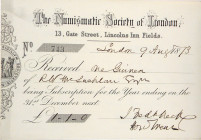 The Numismatic Society of London,
13, Gate Street, Lincolns Inn Fields.
No 743 London 9 Aug 1873
Received One Guinea
of R. W. McLachlan Esqr
being Subscription for the Year ending on the
31st December next
£ 1-1-0